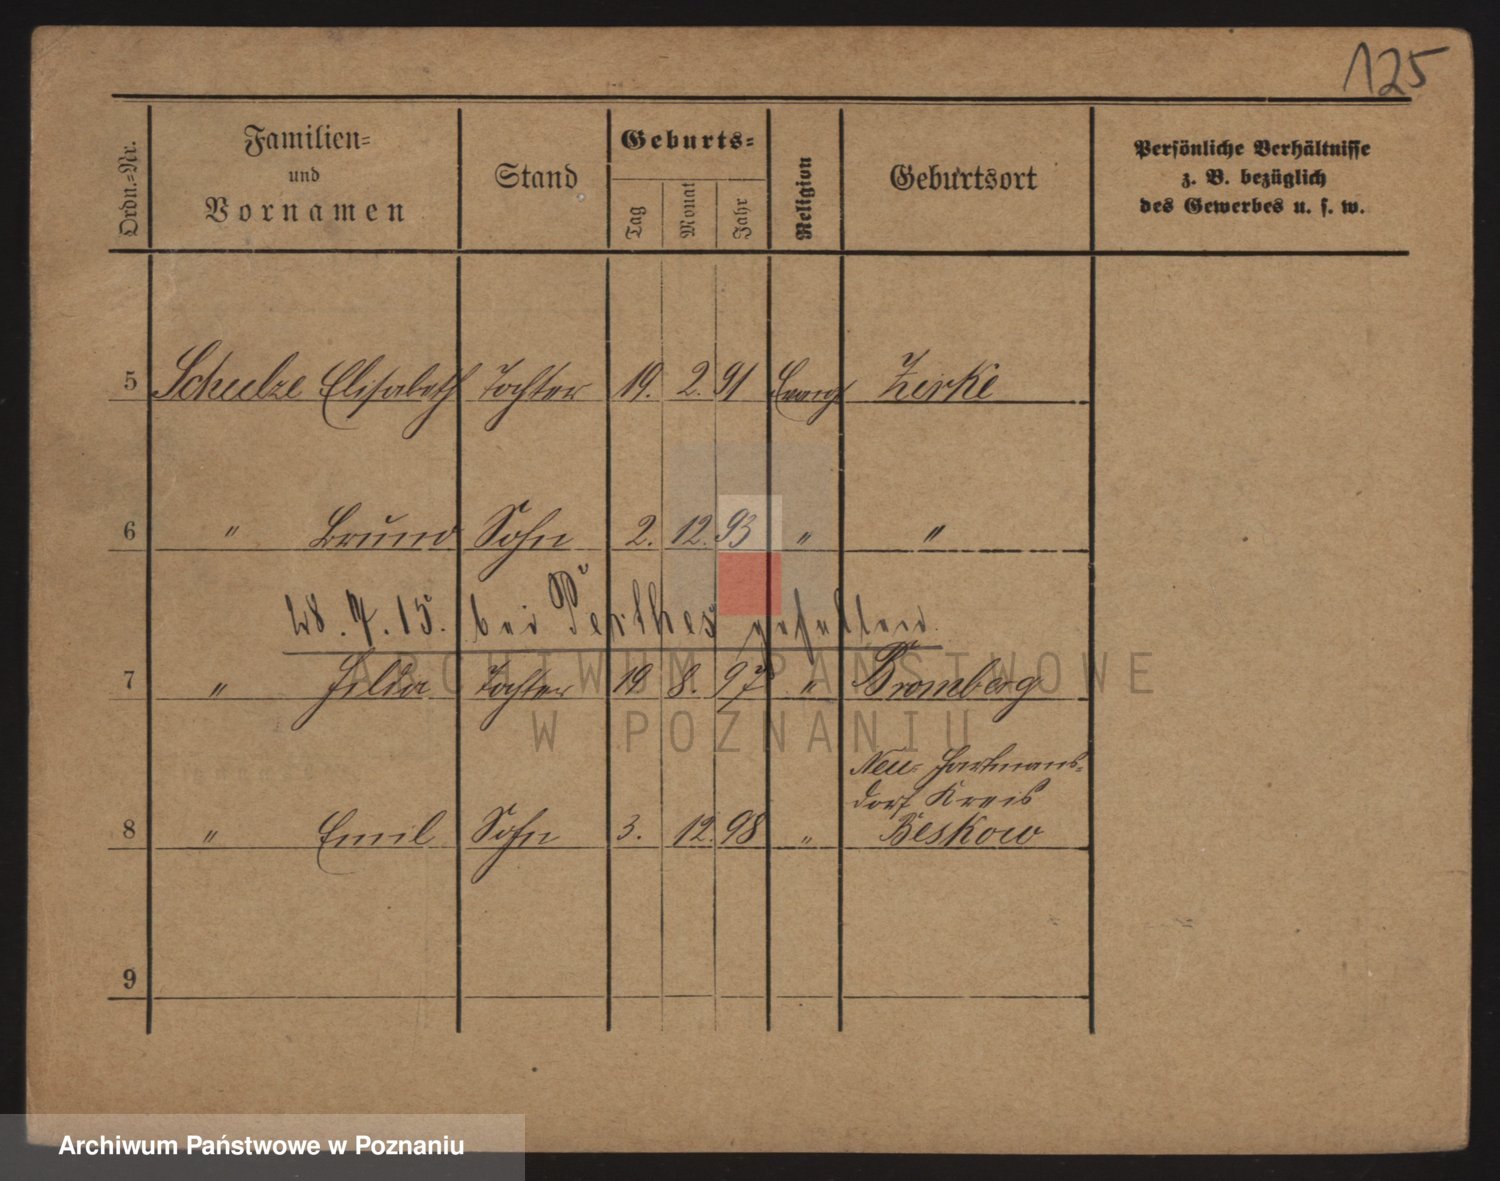 125
Ordn.-Nr.
Familien-
und
Vornamen
Stand
Geburts-
Tag
Monat
Jahr
Religion
Geburtsort
Persönliche Verhältnisse
z. B. bezüglich
des Gewerbes u. s. w.
5 Schulze Elisabeth Tochter 19. 2. 91 Evang Zirke
6 " Bruno Sohn 2. 12. 93 " "
28. 7. 15. bei Perthes gefallen.
7 " Hilda Tochter 19 8. 97 " Bromberg
Neu-Hartmanns-
dorf Kreis
8 " Emil Sohn 3. 12. 98 " Beskow
9
ARCHIWUM PAŃSTWOWE
W POZNANIU
Archiwum Państwowe w Poznaniu